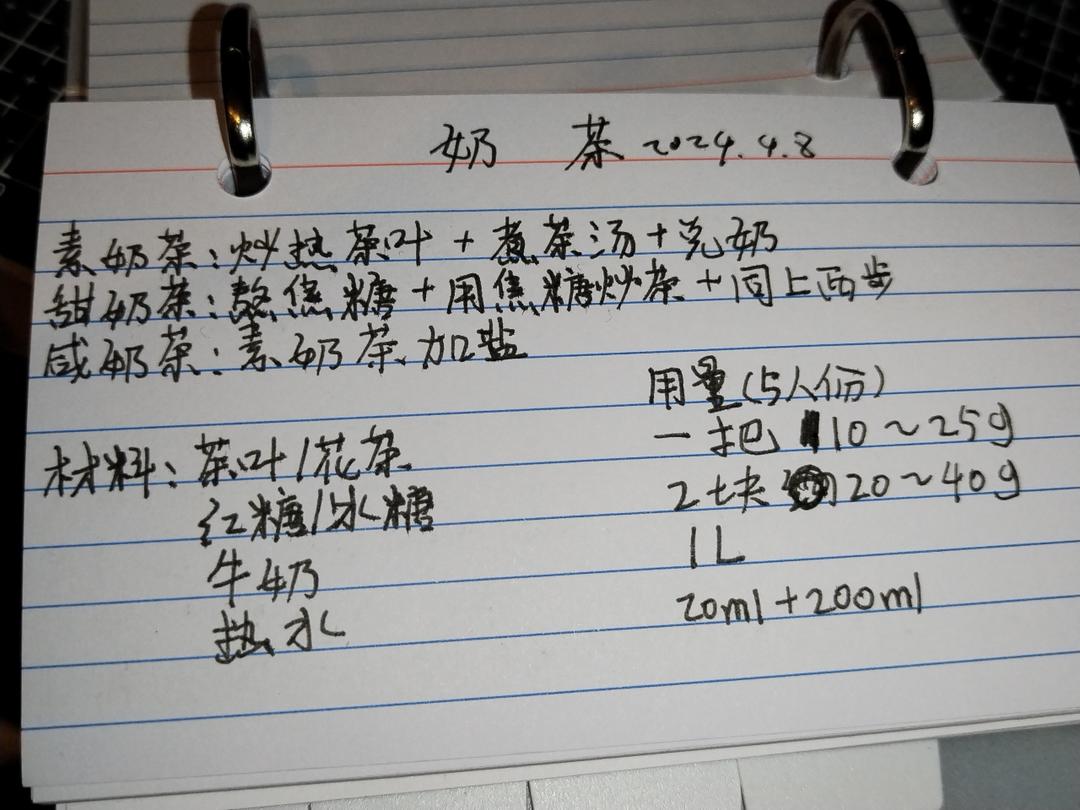 奶 茶 2024.4.8
素奶茶:炒热茶叶+煮茶汤+兑奶
甜奶茶:熬焦糖+用焦糖炒茶+同上两步
咸奶茶:素奶茶加盐
用量(5人份)
材料:茶叶/花茶 一把 10~25g
红糖/冰糖 2块 20~40g
牛奶 1L
热水 20ml+200ml